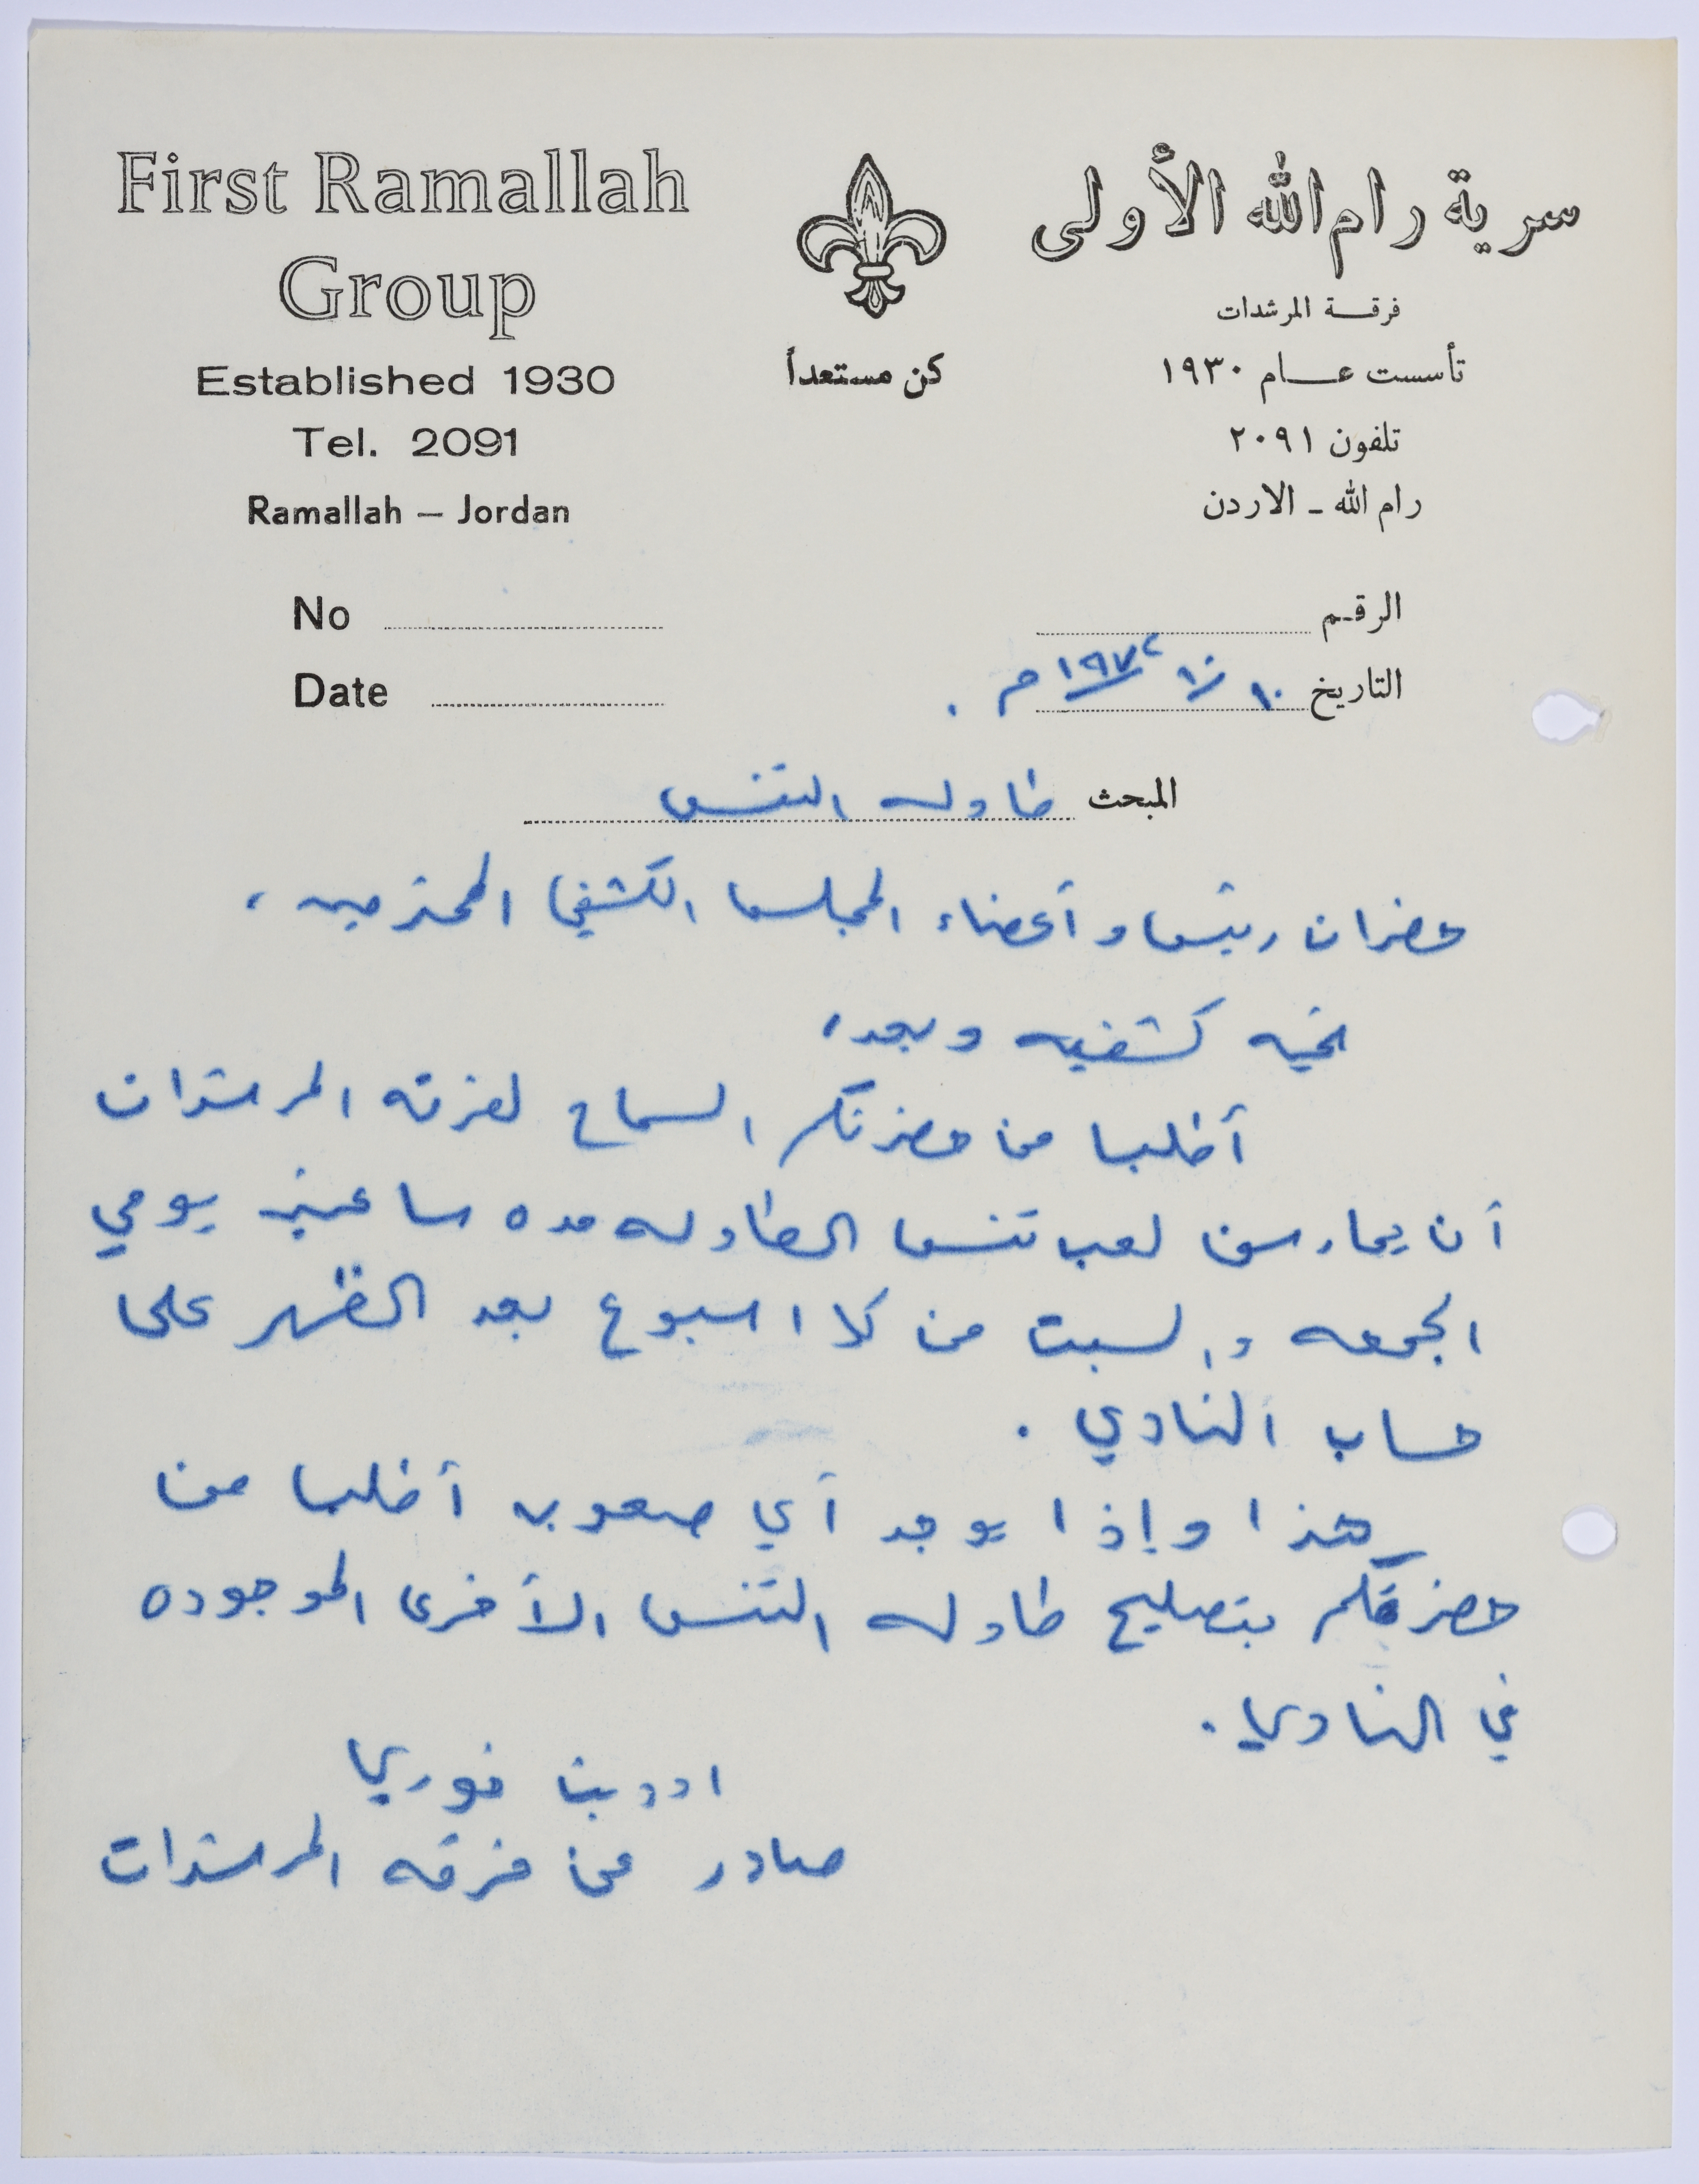 First Ramallah
Group
Established 1930
Tel. 2091
Ramallah – Jordan
كن مستعداً
سرية رام الله الأولى
فرقة المرشدات
تأسست عام ١٩٣٠
تلفون ٢٠٩١
رام الله - الاردن
No
Date
الرقم
التاريخ ١٠ / ١٠ / ١٩٧٢ م .
المبحث طاوله التنس
حضرات رئيس وأعضاء المجلس الكشفي المحترمين ،
تحيه كشفيه وبعد ،
أطلب من حضرتكم السماح لفرقه المرشدات
أن يمارسن لعب تنس الطاوله مده ساعتين يومي
الجمعه والسبت من كل اسبوع بعد الظهر على
حساب النادي .
هذا وإذا يوجد أي صعوبه أطلب من
حضرتكم بتصليح طاوله التنس الأخرى الموجوده
في النادي .
خوري
صادر عن فرقه المرشدات